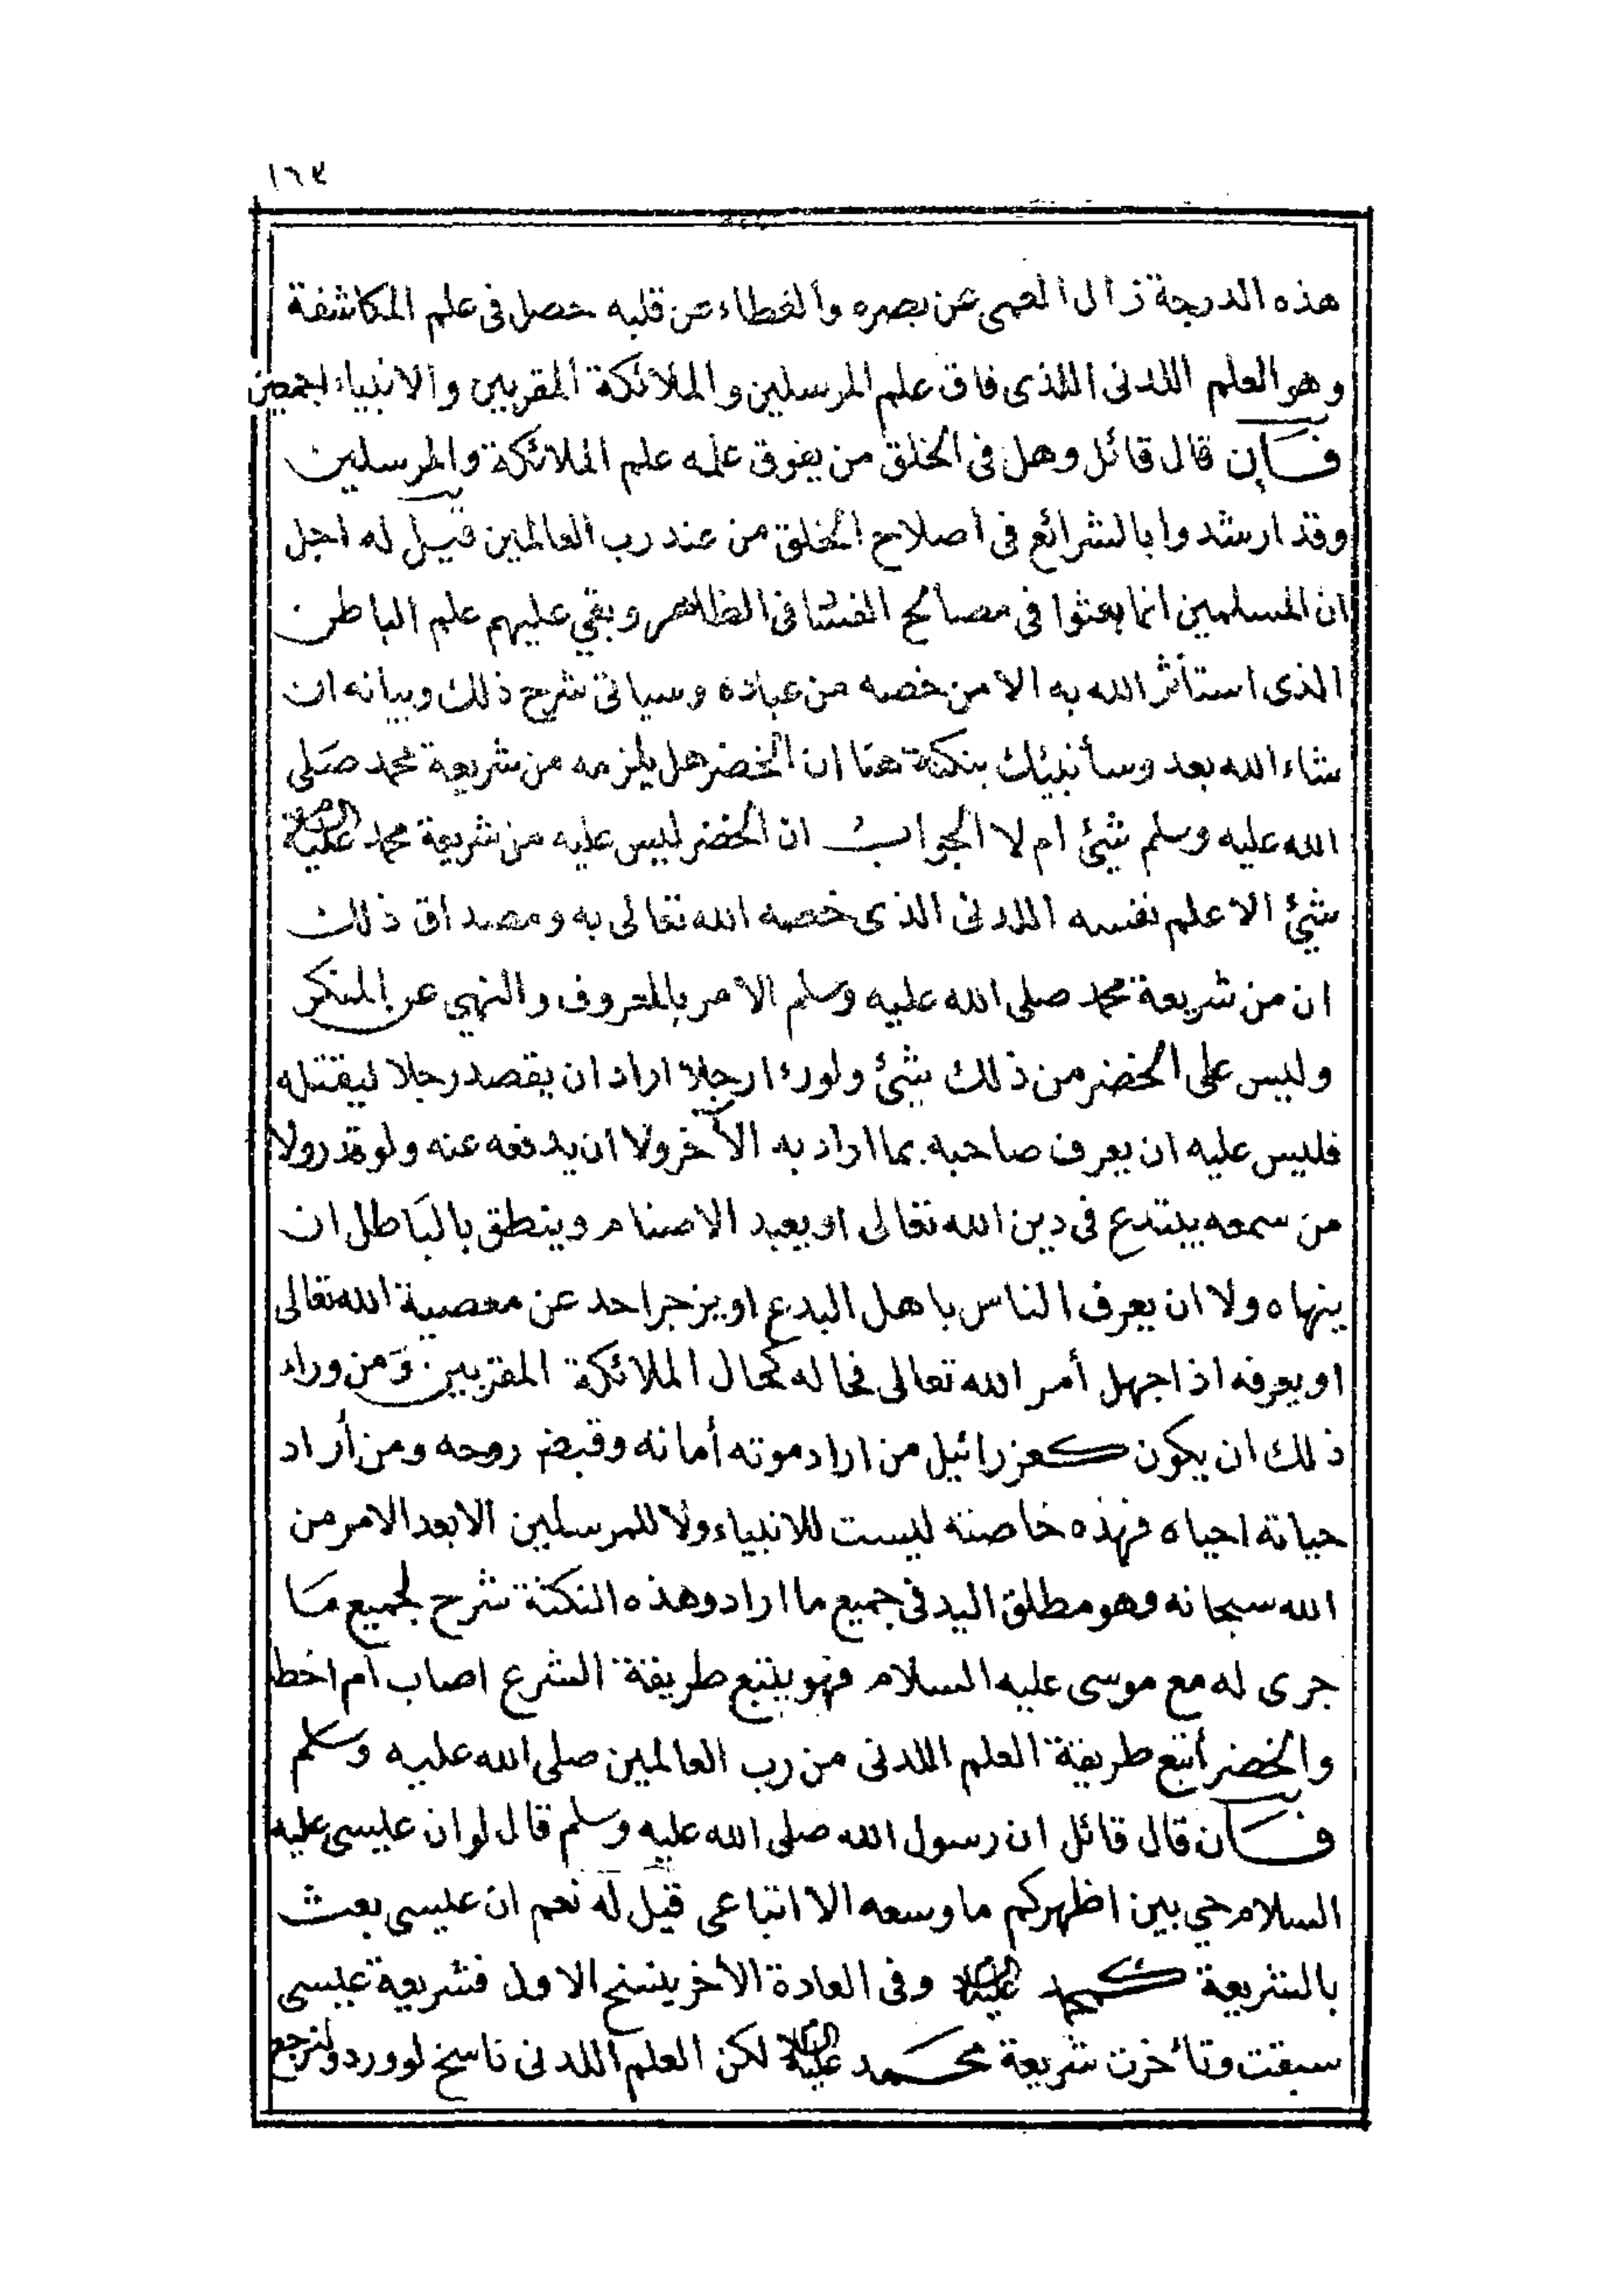 ١٦٣
هذه الدرجة زال العمى عن بصره والغطاء عن قلبه حصل فى علم المكاشفة
وهو العلم اللدنى اللذى فاق علم المرسلين والملائكة المقربين والانبياء اجمعين
فان قال قائل وهل فى الخلق من يفوق علمه علم الملائكة والمرسلين
وقد ارشدوا بالشرائع فى اصلاح الخلق من عند رب العالمين قيل له اجل
ان المسلمين انما بعثوا فى مصالح فى الظاهر وبقي عليهم علم الباطن
الذى استأثر الله به الا من خصه من عباده وسياتى شرح ذلك وبيانه ان
شاء الله بعد وسأنبئك بنكتة هنا ان الخضر هل يلزمه من شريعة محمد صلى
الله عليه وسلم شيئ ام لا الجواب ان الخضر ليس عليه من شريعة محمد عليه
شيئ الا علم نفسه اللدنى الذى خصه الله تعالى به ومصداق ذلك
ان من شريعة محمد صلى الله عليه وسلم الامر بالمعروف والنهي عن المنكر
وليس على الخضر من ذلك شيئ ولو رءا رجلا اراد ان يقصد رجلا ليقتله
فليس عليه ان يعرف صاحبه بما اراد به الآخر ولا ان يدفعه عنه ولو قدر ولا
من سمعه يبتدع فى دين الله تعالى او يعبد الاصنام وينطق بالباطل ان
ينهاه ولا ان يعرف الناس باهل البدع او يزجر احد عن معصية الله تعالى
او يعرفه اذا جهل أمر الله تعالى فحاله كحال الملائكة المقربين ومن وراء
ذلك ان يكون كعزرائيل من اراد موته أماته وقبض روحه ومن أراد
حياته احياه فهذه خاصته ليست للانبياء ولا للمرسلين الا بعد الامر من
الله سبحانه وهو مطلق اليد فى جميع ما اراد وهذه النكتة شرح لجميع ما
جرى له مع موسى عليه السلام فهو يتبع طريقة الشرع اصاب أم اخطا
والخضر أتبع طريقة العلم اللدنى من رب العالمين صلى الله عليه وسلم
فان قال قائل ان رسول الله صلى الله عليه وسلم قال لو ان عيسى عليه
السلام حي بين اظهركم ما وسعه الا اتباعى قيل له نعم ان عيسى بعث
بالشريعة كمحمد وفى العادة الأخر ينسخ الاول فشريعة عيسى
سبقت وتأخرت شريعة محمد لكن العلم اللدنى ناسخ لو ورد ولنرجع